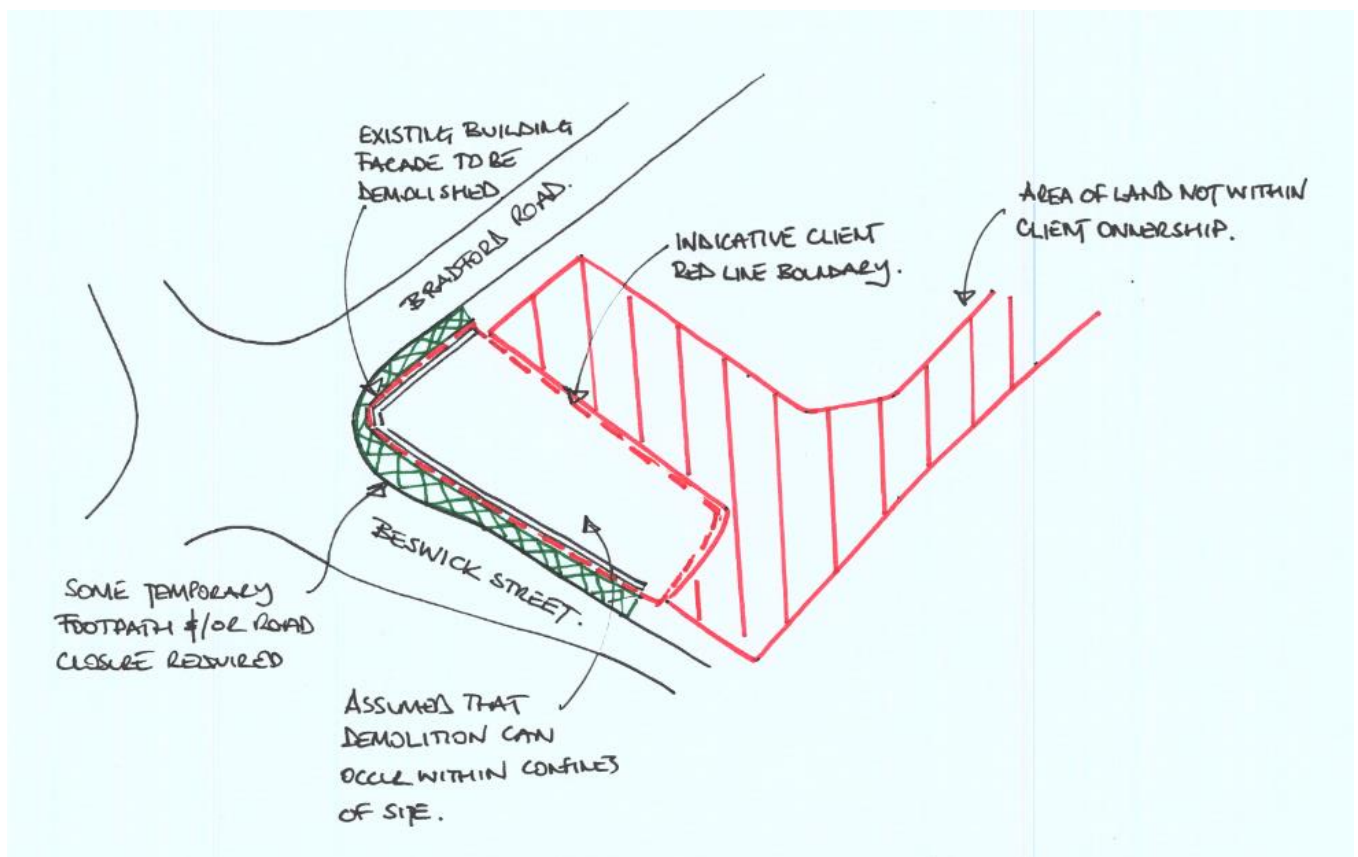 EXISTING BUILDING
FACADE TO BE
DEMOLISHED
BRADFORD ROAD.
INDICATIVE CLIENT
RED LINE BOUNDARY.
AREA OF LAND NOT WITHIN
CLIENT OWNERSHIP.
BESWICK STREET.
SOME TEMPORARY
FOOTPATH &/OR ROAD
CLOSURE REQUIRED
ASSUMED THAT
DEMOLITION CAN
OCCUR WITHIN CONFINES
OF SITE.